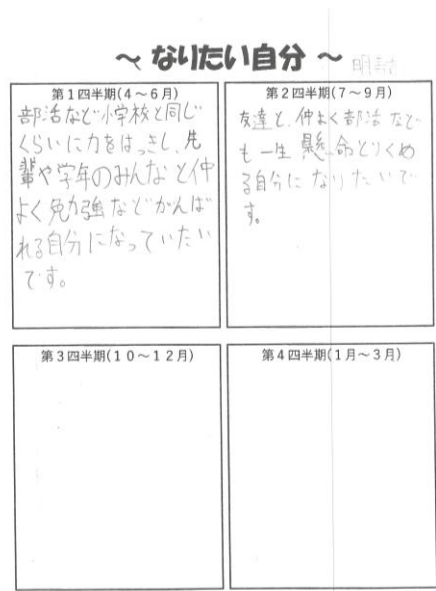 ～ なりたい自分 ～
第1四半期(4～6月)
部活など小学校と同じ
くらいに力をはっきし、先
輩や学年のみんなと仲
よく勉強などがんば
れる自分になっていたい
です。
第2四半期(7～9月)
友達と、仲よく部活など
も一生懸命とりくめ
る自分になりたいで
す。
第3四半期(10～12月)
第4四半期(1月～3月)